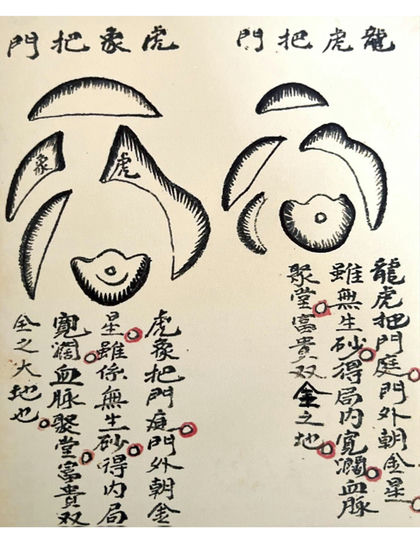 龍虎把門
龍虎把門庭門外朝金星
雖無生砂得局內寬濶血脉
聚堂富貴双全之地
虎象把門
虎
象
虎象把門庭門外朝金
星雖係無生砂得內局
寬濶血脉聚堂富貴双
全之大地也